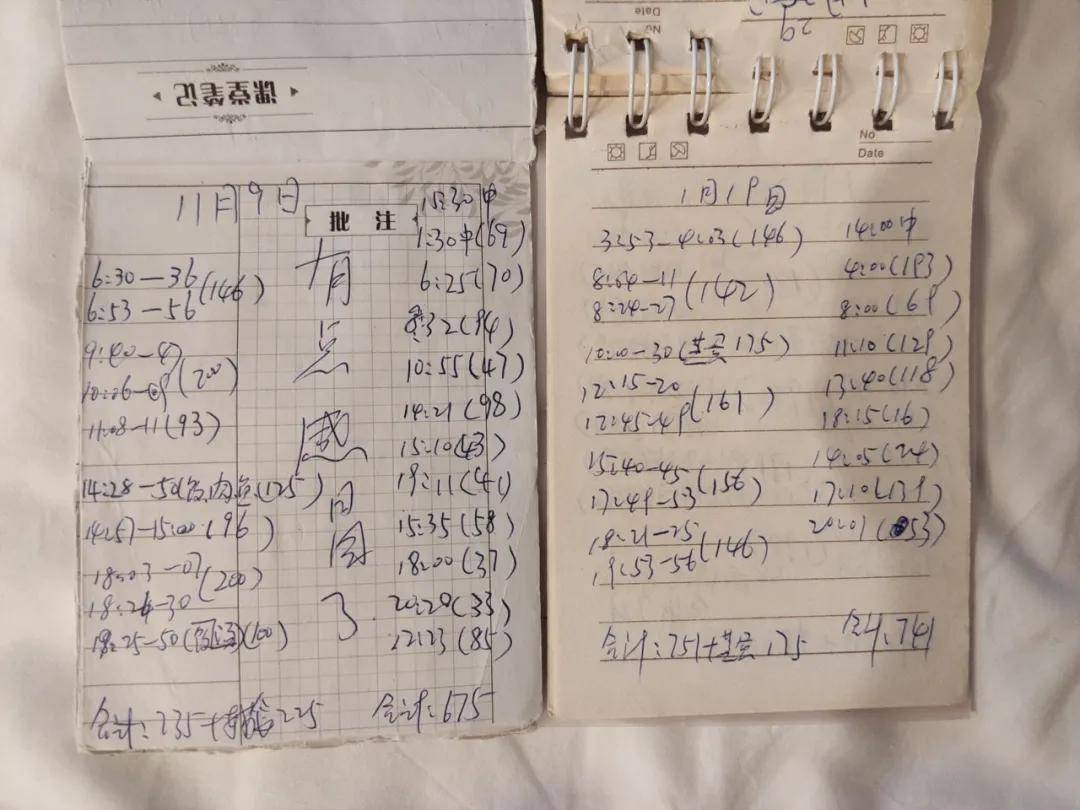 课堂笔记
11月9日
批 注
6:30-36
6:53-56
(146)
9:40-47
10:06-09
(200)
11:08-11(93)
14:28-50
(125)
14:57-15:00(96)
18:03-07
18:24-30
(200)
18:25-50
(100)
合计:735+
225
有
点
感
冒
了
15:30中
1:30中(69)
6:25(70)
8:32(94)
10:55(47)
14:21(98)
15:10(43)
19:11(41)
15:35(58)
18:00(37)
20:20(33)
22:23(85)
合计:675
No
Date
29
No
Date
1月19日
3:53-4:03(146)
8:04-11
8:24-27
(142)
10:10-30
175)
12:15-20
12:45-49
(161)
15:40-45
17:49-53
(156)
18:21-25
19:53-56
(146)
合计:751+
175
14:00中
4:00(193)
8:00(69)
11:10(129)
13:40(118)
18:15(16)
14:05(24)
17:10(139)
20:01(53)
合计:741